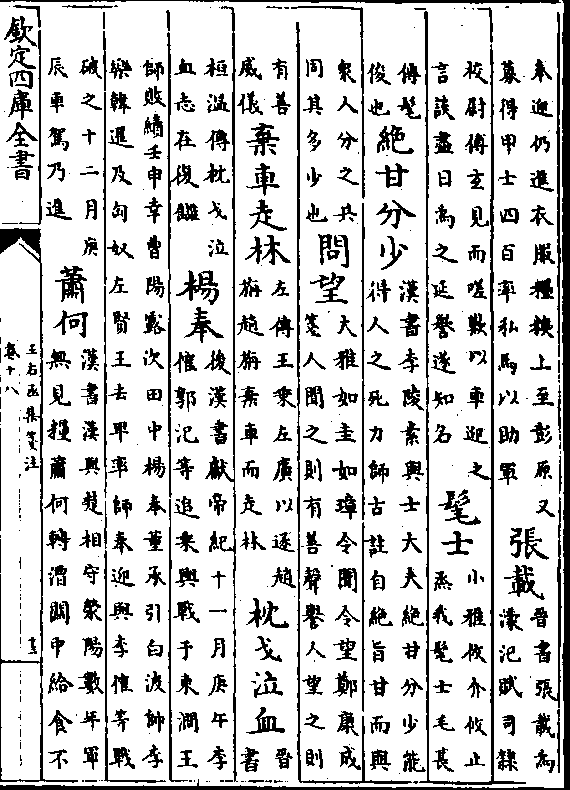 奉迎仍進衣服糧糗上至彭原又
募得甲士四百率私馬以助軍
張載
晉書張載為
濛汜賦司隸
校尉傅玄見而嗟歎以車迎之
言談盡日為之延譽遂知名
髦士
小雅攸介攸止
烝我髦士毛萇
傳髦
俊也
絶甘分少
漢書李陵素與士大夫絶甘分少能
得人之死力師古註自絶旨甘而與
衆人分之共
同其多少也
問望
大雅如圭如璋令聞令望鄭康成
箋人聞之則有善聲譽人望之則
有善
威儀
棄車走林
左傳王乗左廣以逐趙
旃趙旃棄車而走林
枕戈泣血
晉
書
桓溫傳枕戈泣
血志在復讎
楊奉
後漢書獻帝紀十一月庚午李
傕郭汜等追乗輿戰于東澗王
師敗績壬申幸曹陽露次田中楊奉董承引白波帥李
樂韓暹及匈奴左賢王去卑率師奉迎與李傕等戰
破之十二月庚
辰車駕乃進
蕭何
漢書漢與楚相守滎陽數年軍
無見糧蕭何轉漕關中給食不
欽定四庫全書
王右丞集箋注
卷十八